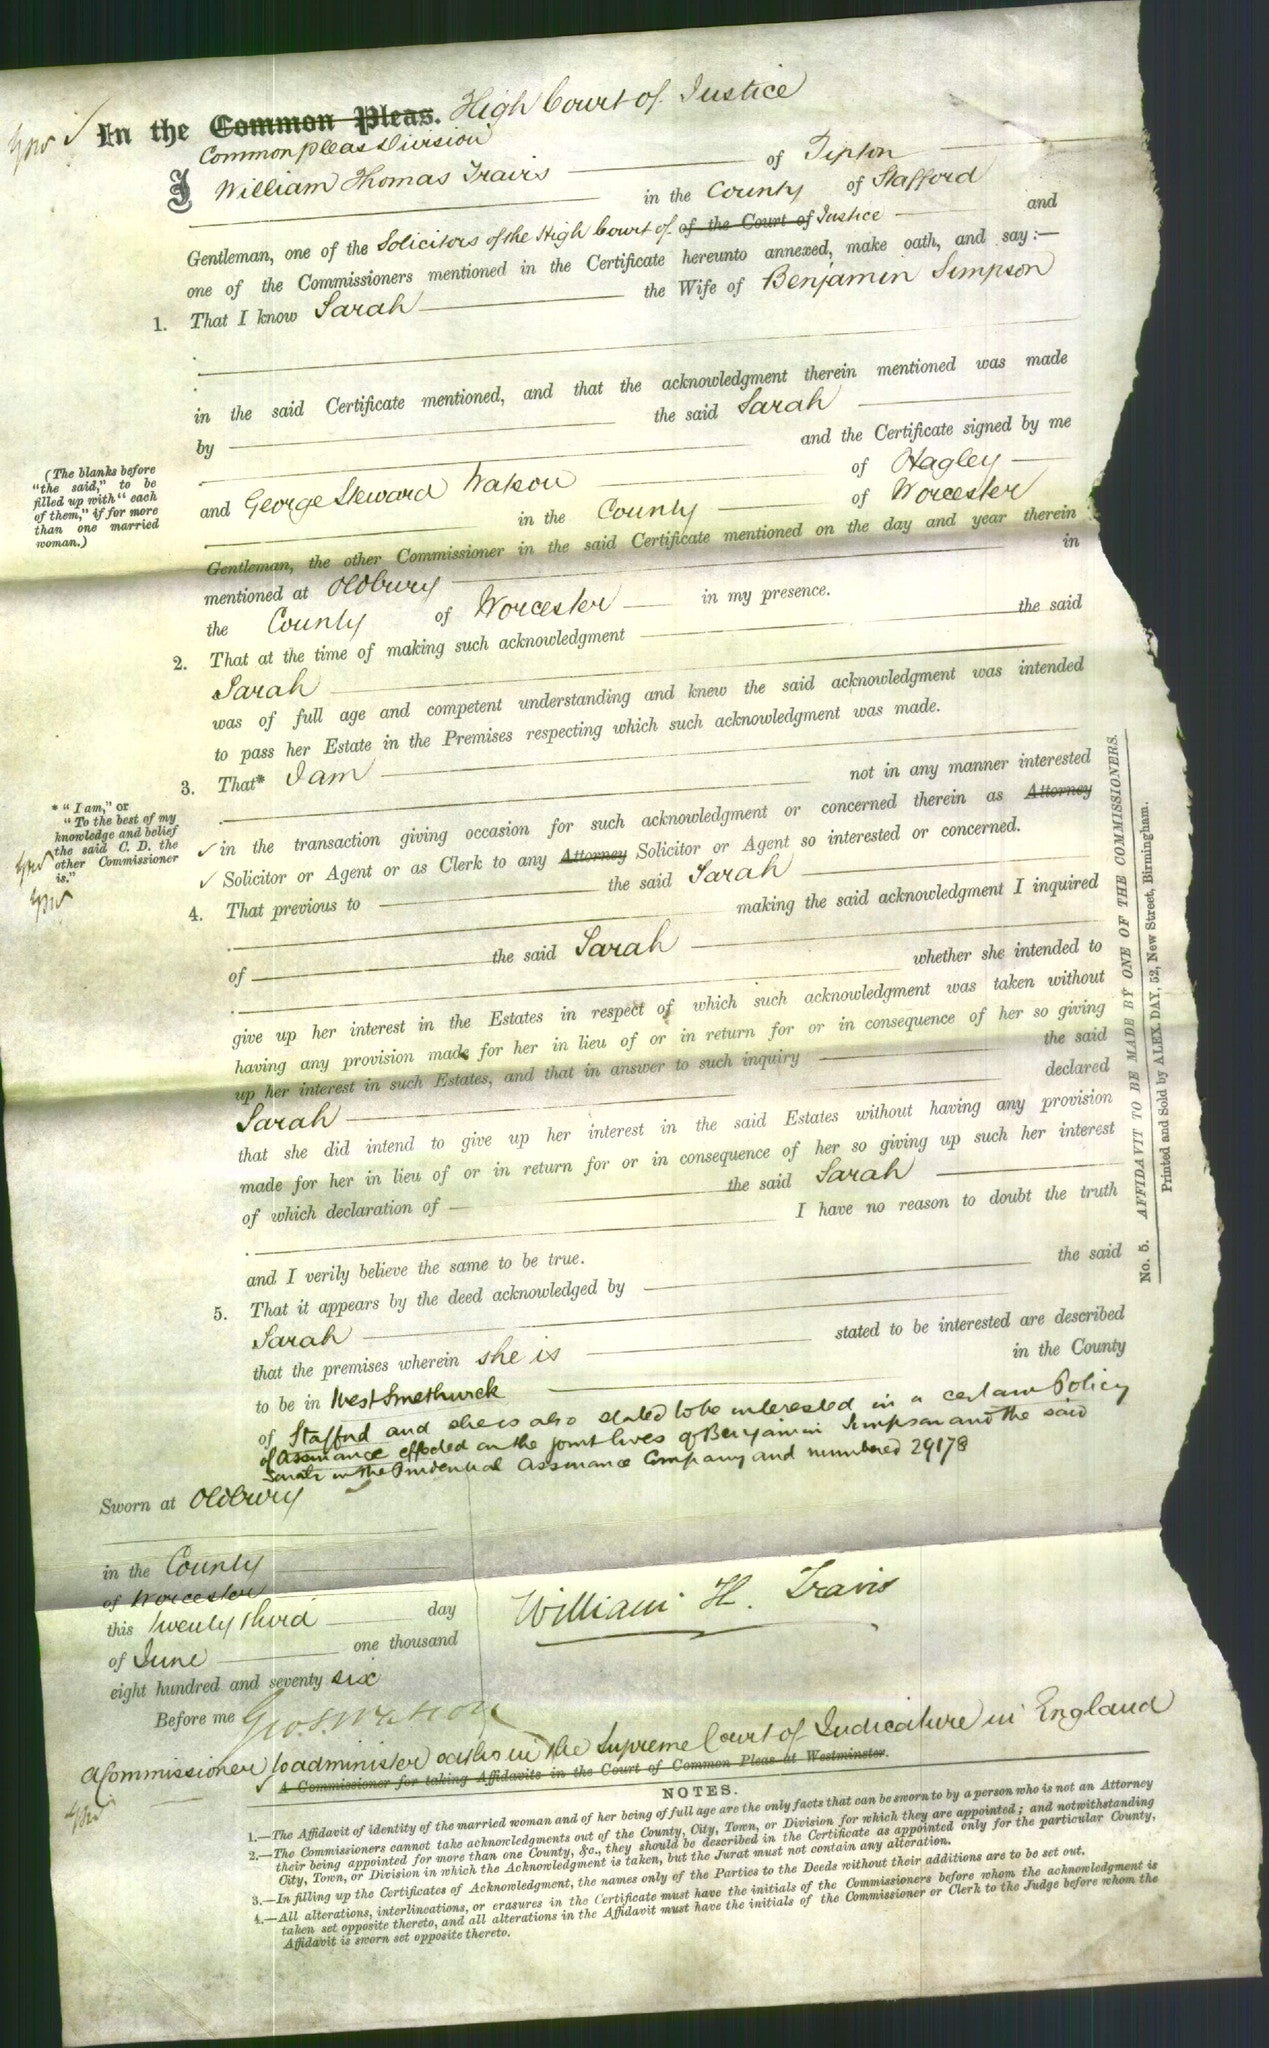 In the Common Pleas. High Court of Justice
Common Pleas Division
I William Thomas Travis of Tipton
in the County of Stafford
Gentleman, one of the Solicitors of the High Court of of the Court of Justice and
one of the Commissioners mentioned in the Certificate hereunto annexed, make oath, and say:—
1. That I know Sarah the Wife of Benjamin Simpson
in the said Certificate mentioned, and that the acknowledgment therein mentioned was made
by the said Sarah
and the Certificate signed by me
(The blanks before
"the said," to be
filled up with "each
of them," if for more
than one married
woman.)
and George Steward Watson of Hagley
in the County of Worcester
Gentleman, the other Commissioner in the said Certificate mentioned on the day and year therein
mentioned at Oldbury in
the County of Worcester in my presence.
2. That at the time of making such acknowledgment the said
Sarah
was of full age and competent understanding and knew the said acknowledgment was intended
to pass her Estate in the Premises respecting which such acknowledgment was made.
3. That* I am
not in any manner interested
* "I am," or
"To the best of my
knowledge and belief
the said C. D. the
other Commissioner
is."
in the transaction giving occasion for such acknowledgment or concerned therein as Attorney
Solicitor or Agent or as Clerk to any Attorney Solicitor or Agent so interested or concerned.
4. That previous to the said Sarah
making the said acknowledgment I inquired
of the said Sarah
whether she intended to
give up her interest in the Estates in respect of which such acknowledgment was taken without
having any provision made for her in lieu of or in return for or in consequence of her so giving
up her interest in such Estates, and that in answer to such inquiry the said
Sarah declared
that she did intend to give up her interest in the said Estates without having any provision
made for her in lieu of or in return for or in consequence of her so giving up such her interest
of which declaration of the said Sarah
I have no reason to doubt the truth
and I verily believe the same to be true.
5. That it appears by the deed acknowledged by the said
Sarah
that the premises wherein she is stated to be interested are described
to be in West Smethwick in the County
of Stafford and she is also stated to be interested in a certain Policy
of Assurance effected on the joint lives of Benjamin Simpson and the said
Sarah in the Prudential Assurance Company and numbered 29178
Sworn at Oldbury
in the County
of Worcester
this twenty third day
of June one thousand
eight hundred and seventy six
William H. Travis
Before me Geo. S. Watson
A Commissioner to administer oaths in the Supreme Court of Judicature in England
A Commissioner for taking Affidavits in the Court of Common Pleas at Westminster.
NOTES.
1.—The Affidavit of identity of the married woman and of her being of full age are the only facts that can be sworn to by a person who is not an Attorney
2.—The Commissioners cannot take acknowledgments out of the County, City, Town, or Division for which they are appointed; and notwithstanding
their being appointed for more than one County, &c., they should be described in the Certificate as appointed only for the particular County,
City, Town, or Division in which the Acknowledgment is taken, but the Jurat must not contain any alteration.
3.—In filling up the Certificates of Acknowledgment, the names only of the Parties to the Deeds without their additions are to be set out.
4.—All alterations, interlineations, or erasures in the Certificate must have the initials of the Commissioners before whom the acknowledgment is
taken set opposite thereto, and all alterations in the Affidavit must have the initials of the Commissioner or Clerk to the Judge before whom the
Affidavit is sworn set opposite thereto.
No. 5. AFFIDAVIT TO BE MADE BY ONE OF THE COMMISSIONERS.
Printed and Sold by ALEX. DAY, 52, New Street, Birmingham.